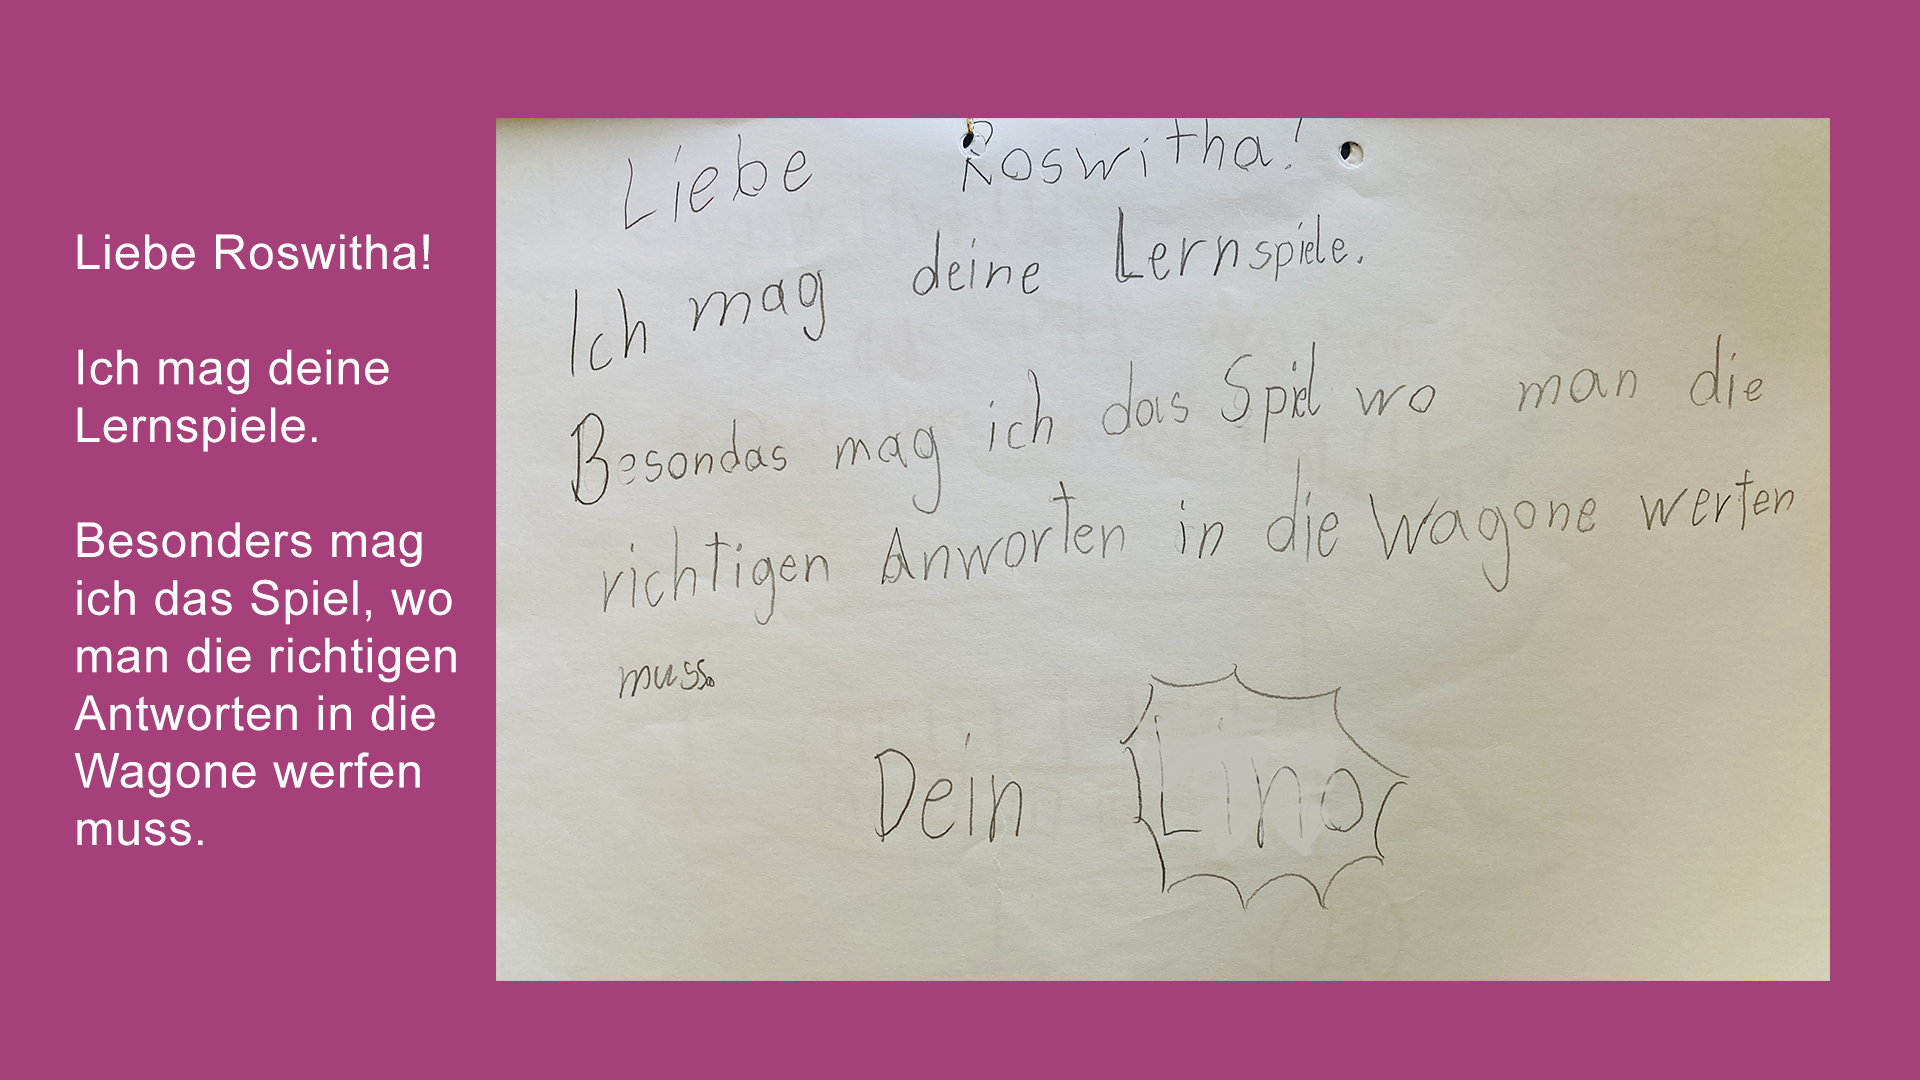 Liebe Roswitha!
Ich mag deine
Lernspiele.
Besonders mag
ich das Spiel, wo
man die richtigen
Antworten in die
Wagone werfen
muss.
Liebe Roswitha!
Ich mag deine Lernspiele.
Besondas mag ich das Spiel wo man die
richtigen Anworten in die Wagone werfen
muss.
Dein Lino